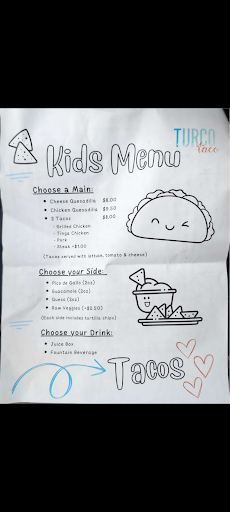 TURCO
taco
Kids Menu
Choose a Main:
Cheese Quesadilla $8.00
Chicken Quesadilla $9.50
2 Tacos $8.00
- Grilled Chicken
- Tinga Chicken
- Pork
- Steak +$1.00
(Tacos served with lettuce, tomato & cheese)
Choose your Side:
Pico de Gallo (2oz)
Guacamole (2oz)
Queso (2oz)
Raw Veggies (+$2.50)
(Each side includes tortilla chips)
Choose your Drink:
Juice Box
Fountain Beverage
Tacos